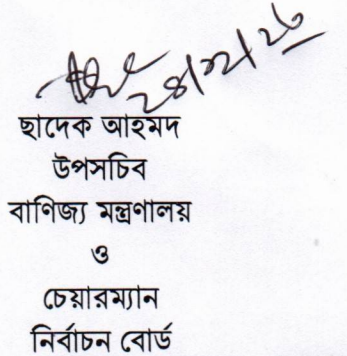 ছাদেক আহমদ
উপসচিব
বাণিজ্য মন্ত্রণালয়
ও
চেয়ারম্যান
নির্বাচন বোর্ড